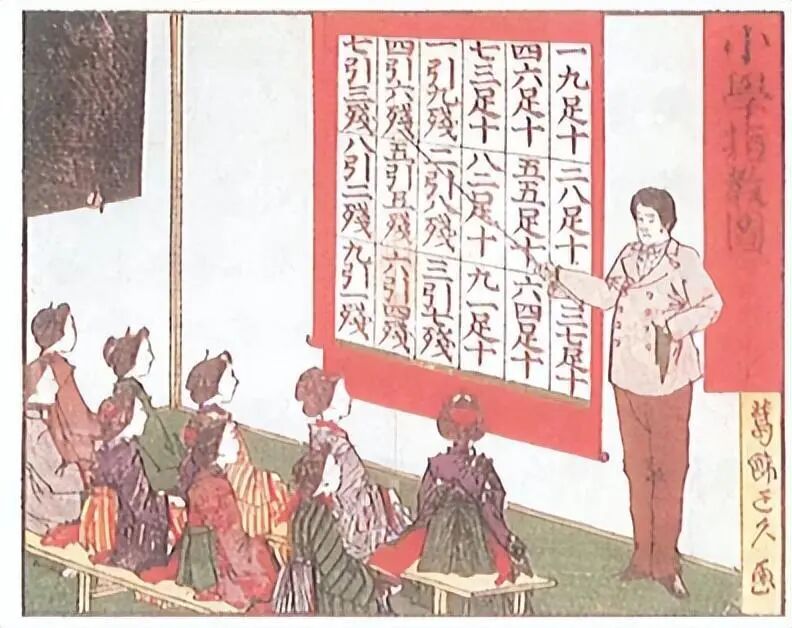 小學指教圖
葛飾正久画
一九足十 二八足十 三七足十
四六足十 五五足十 六四足十
七三足十 八二足十 九一足十
一引九殘 二引八殘 三引七殘
四引六殘 五引五殘 六引四殘
七引三殘 八引二殘 九引一殘